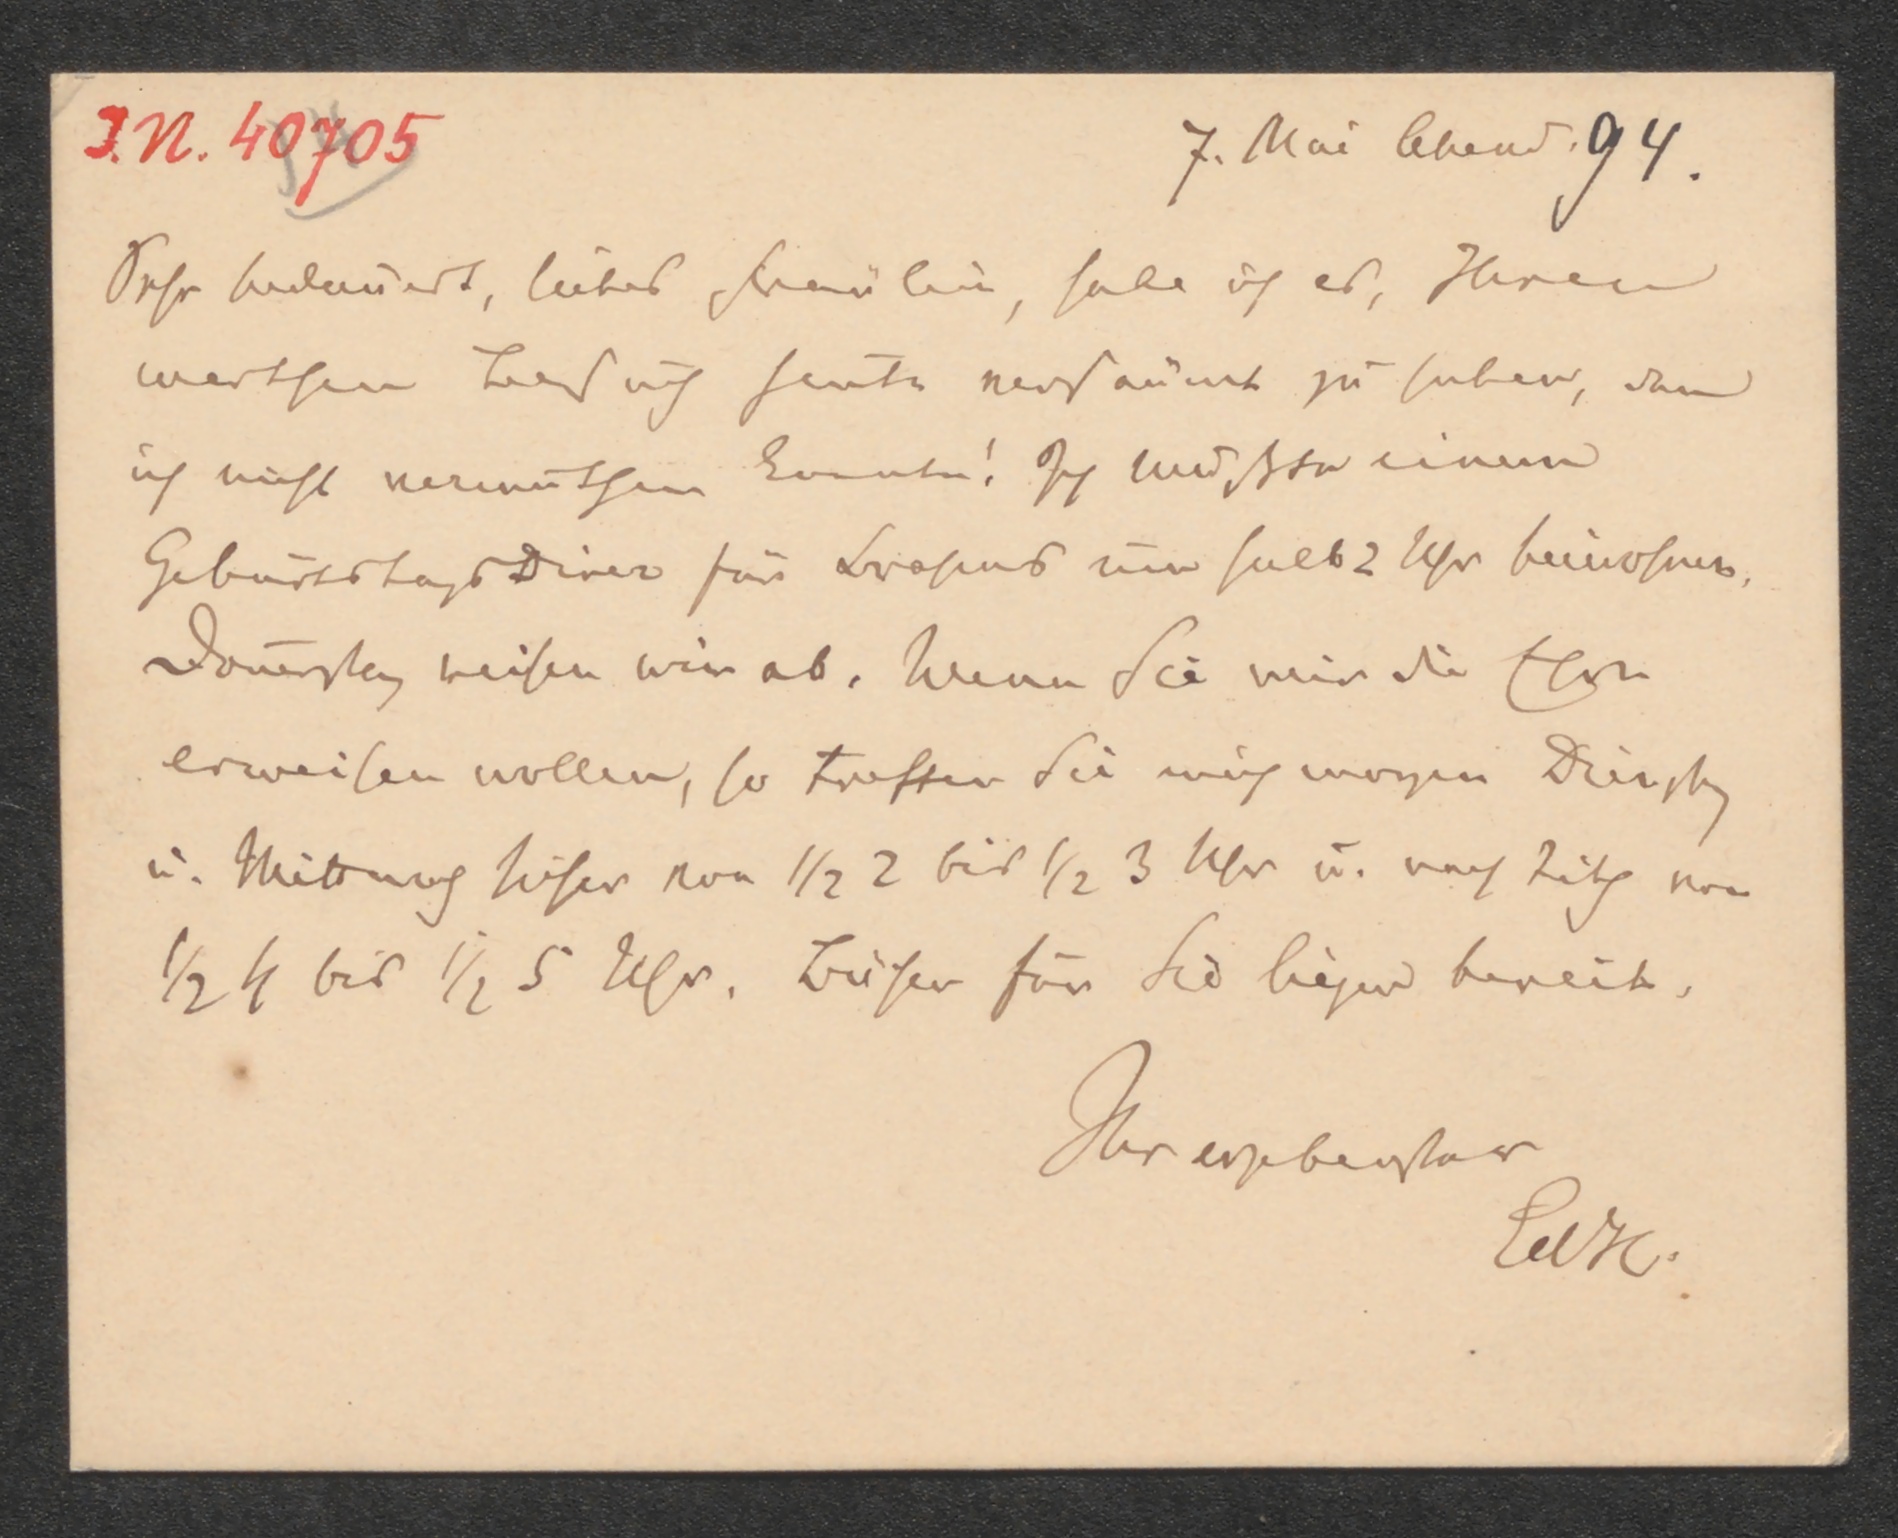 I.N. 40705
7. Mai Abend. 94.
Sehr bedauert, liebes Fräulein, habe ich es, Ihren
werthen Besuch heute versäumt zu haben, den
ich nicht vermuthen konnte! Ich mußte einem
Geburtstags Diner für Brahms um halb 2 Uhr beiwohnen.
Donnerstag reisen wir ab. Wenn Sie mir die Ehre
erweisen wollen, so treffen Sie mich morgen Dienstag
u. Mittwoch sicher von 1/2 2 bis 1/2 3 Uhr u. nach Tisch von
1/2 4 bis 1/2 5 Uhr. Bücher für Sie liegen bereit.
Ihr ergebenster
EdH.